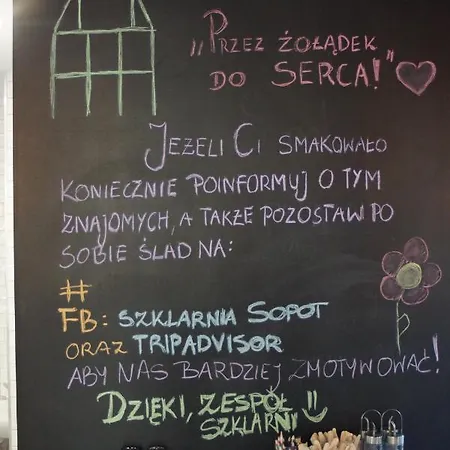 „PRZEZ ŻOŁĄDEK
DO SERCA!"
JEŻELI CI SMAKOWAŁO
KONIECZNIE POINFORMUJ O TYM
ZNAJOMYCH, A TAKŻE POZOSTAW PO
SOBIE ŚLAD NA:
#
FB: SZKLARNIA SOPOT
ORAZ TRIPADVISOR
ABY NAS BARDZIEJ ZMOTYWOWAĆ!
DZIĘKI, ZESPÓŁ
SZKLARNI